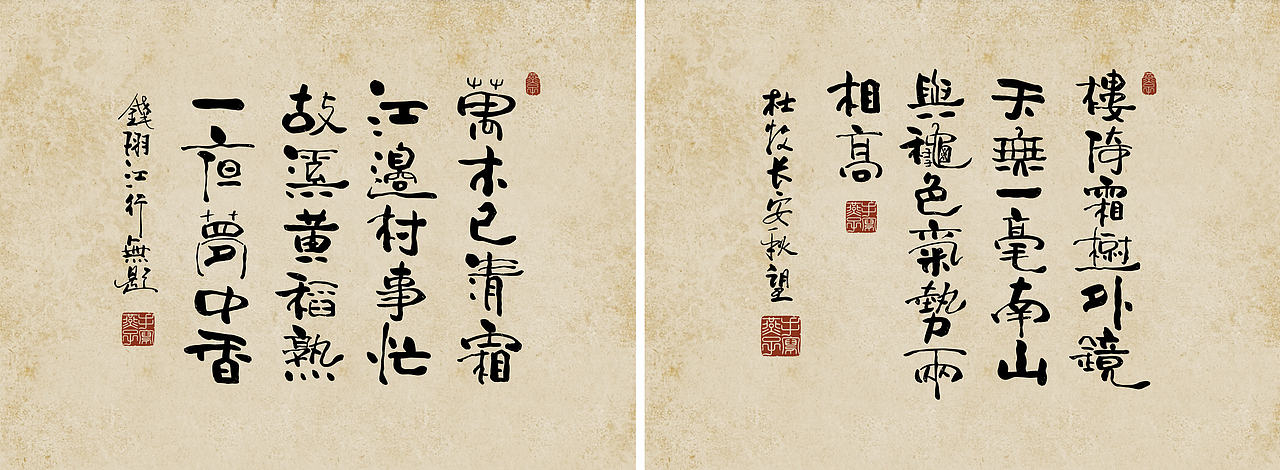 萬木已清霜
江邊村事忙
故溪黃稻熟
一夜夢中香
錢珝江行無題
樓倚霜樹外鏡
天無一毫南山
與穐色氣勢兩
相高
杜牧长安秋望